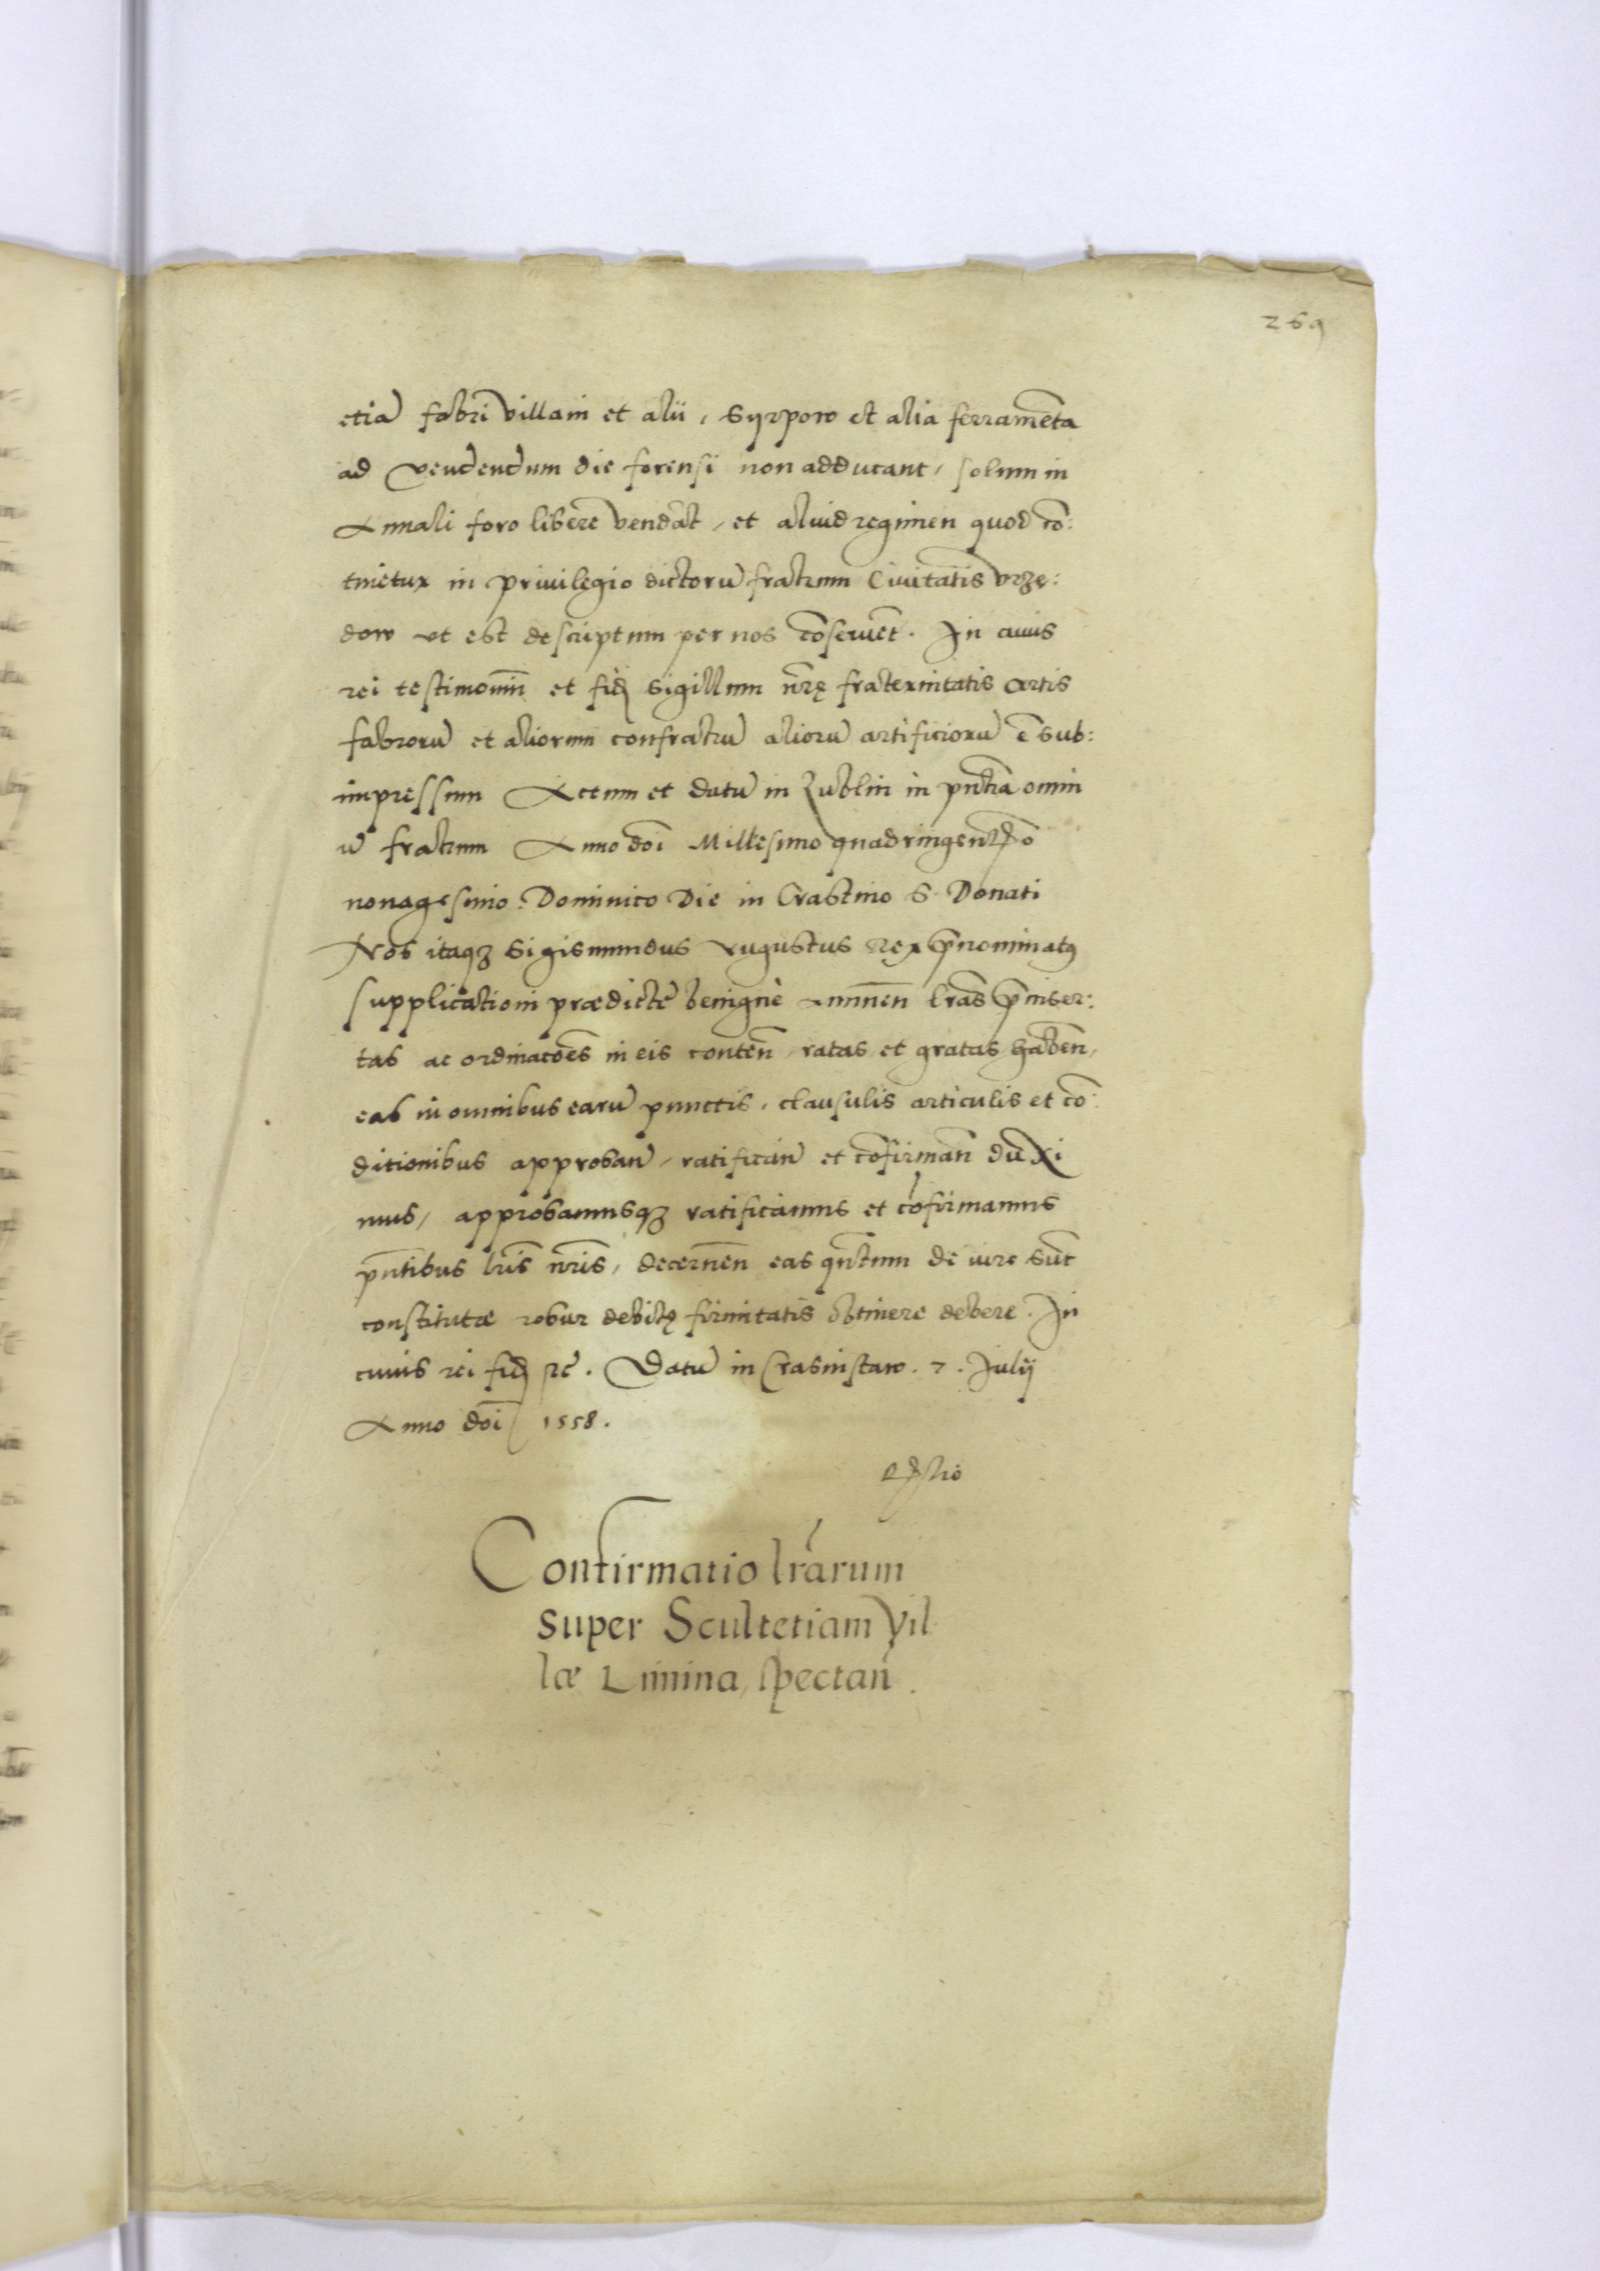 269
etiā fabri villani et alii, Syrpow et alia ferramēta
ad vendendum die forensi non adducant, solum in
Annali foro liberē vendāt, et aliud regimen quod cō:
tinetur in privilegio dictorū fratrum Civitatis Vrzę:
dow ut est descriptum per nos cōservēt. In cuius
rei testimoniū et fid sigillum nr̄ę fraternitatis artis
fabrorū et aliorum confratrū aliorū artificiorū ē sub:
impressum Actum et datū in Lublin in pn̄tia omni
ū fratrum Anno doī Millesimo quadringentesīo
nonagesimo. Dominico Die in Crastino S. Donati
Nos itaqȝ Sigismundus Augustus Rex p̄nominatꝰ
supplicationi prædictę benignè annuen̄ lr̄as p̄inser:
tas ac ordinacōes in eis conten̄, ratas et gratas haben̄,
eas in omnibus earū punctis, clausulis articulis et cō:
ditionibus approban̄, ratifican̄ et cōfirman̄ duxi
mus, approbamusqȝ ratificamus et cōfirmamus
pn̄tibus lr̄is nr̄is, decernen̄ eas qn̄tum de iure sūt
constitutæ robur debitę firmitatis obtinere debere. In
cuius rei fid etc̄. Datū in Crasnistaw. 7. Julij
Anno doī 1558.
Confirmatio lr̄arum
super Scultetiam Vil
læ Limina, spectan̄.